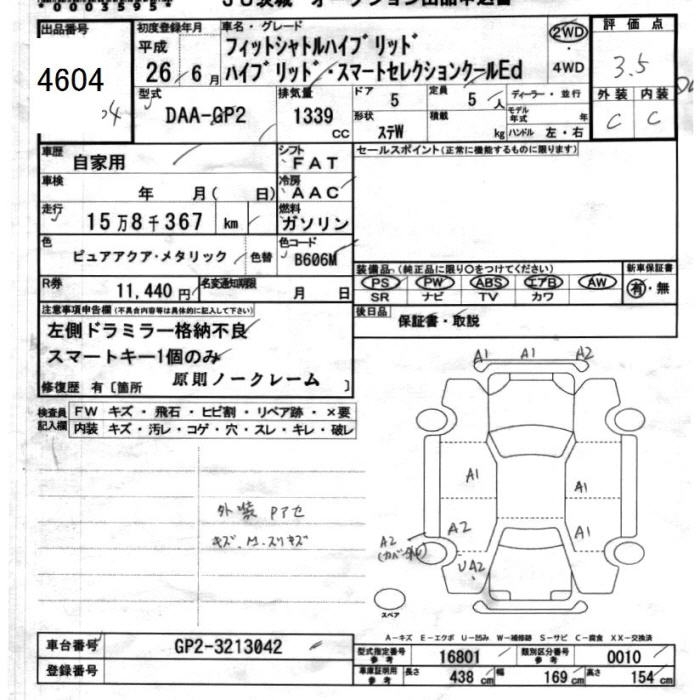 JU茨城 オークション出品申込書
出品番号
4604
初度登録年月
平成
26 年 6 月
車名・グレード
フィットシャトルハイブリッド
ハイブリッド・スマートセレクションクールEd
2WD
・
4WD
評価点
3.5
外装 内装
C C
型式
DAA-GP2
排気量
1339
cc
ドア
5
定員
5 人
ディーラー・並行
形状
ステW
積載
kg
モデル年式 年
ハンドル 左・右
車歴
自家用
シフト
FAT
セールスポイント(正常に機能するものに限ります)
車検
年 月( 日)
冷房
AAC
走行
15万8千367 km
燃料
ガソリン
色
ピュアアクア・メタリック
色替
色コード
B606M
装備品(純正品に限り○をつけてください)
PS PW ABS エアB AW
SR ナビ TV カワ
新車保証書
有・無
R券
11,440円
名変通知期限
月 日
後日品
保証書・取説
注意事項申告欄(不具合内容等は具体的に記入して下さい)
左側ドラミラー格納不良
スマートキー1個のみ
修復歴 有〔箇所 原則ノークレーム 〕
検査員
記入欄
FW キズ・飛石・ヒビ割・リペア跡・×要
内装 キズ・汚レ・コゲ・穴・スレ・キレ・破レ
外装 Pアセ
キズ、M.スリキズ
A1 A1 A2
A1
A1
A2
A1
A2
UA2
スペア
A-キズ E-エクボ U-凹み W-補修跡 S-サビ C-腐食 XX-交換済
車台番号
GP2-3213042
登録番号
型式指定番号
参考
16801
類別区分番号
参考
0010
車庫証明用
参考
長さ
438 cm
幅
169 cm
高さ
154 cm